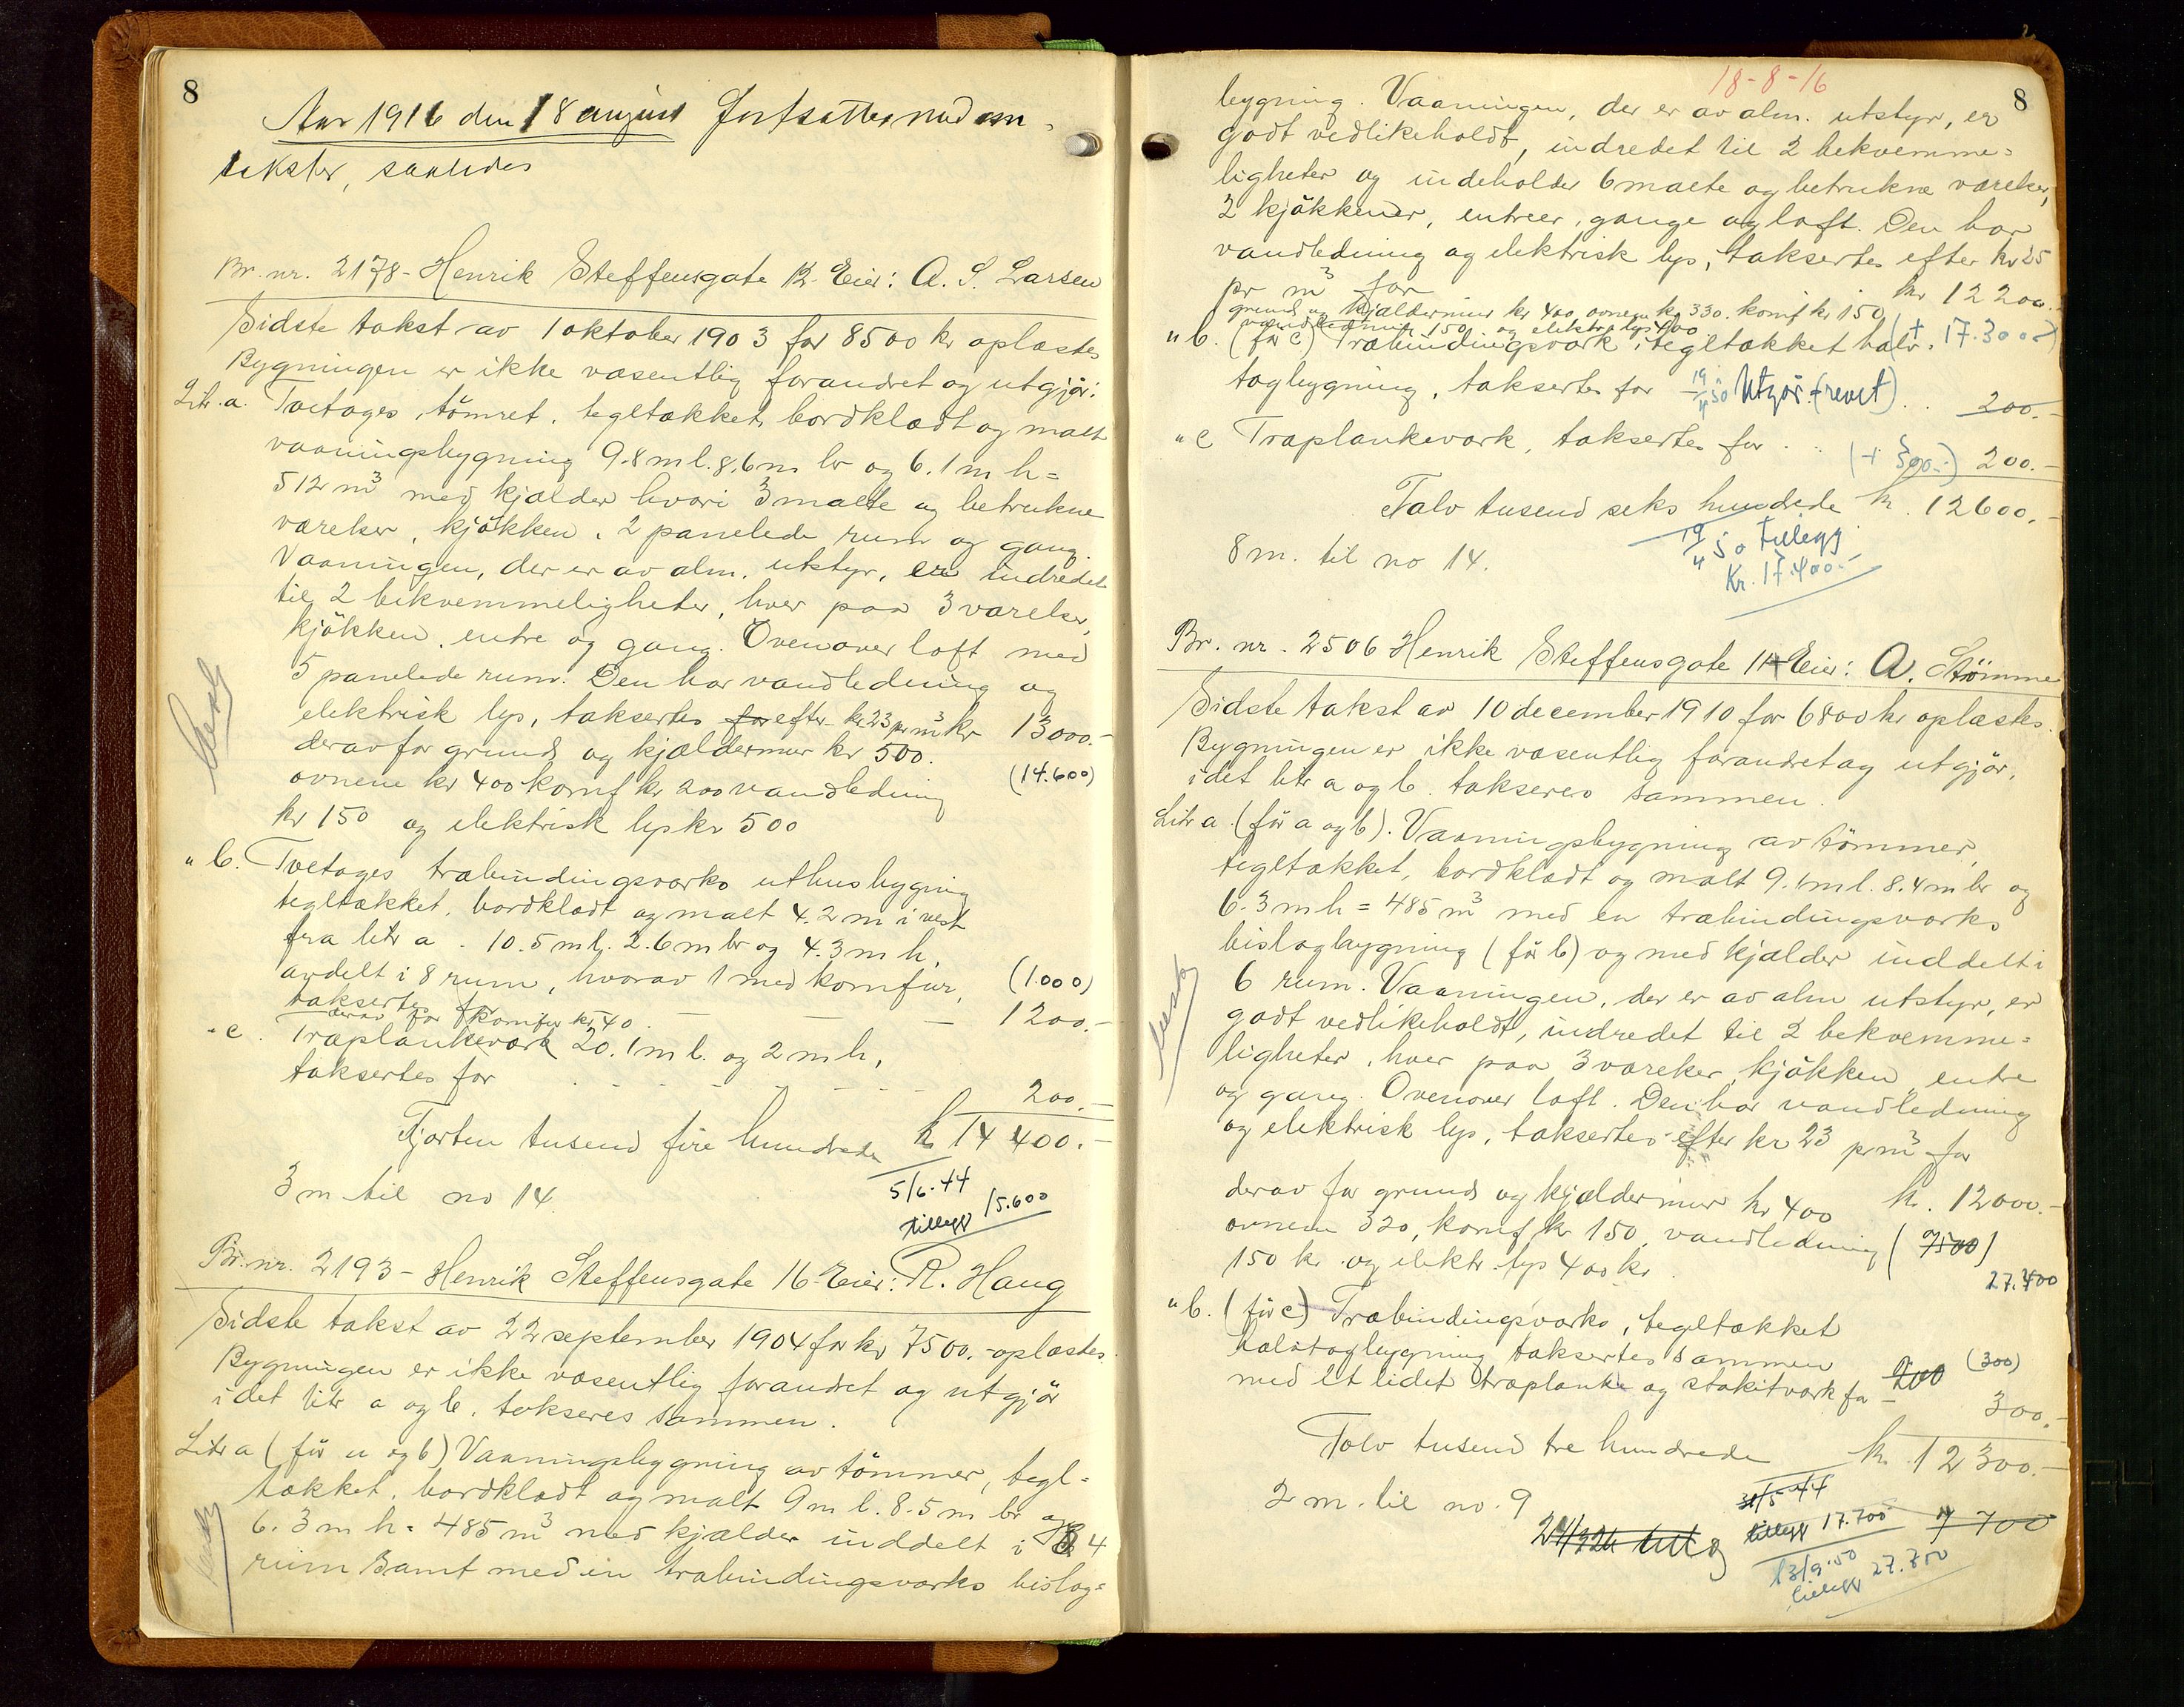 8
Aar 1916 den 18 august fortsattes med om=
takster, saaledes
Br. nr. 2178 - Henrik Steffensgate 12 - Eier: A. S. Larsen
Sidste takst av 1 oktober 1903 for 8500 kr oplæstes
Bygningen er ikke væsentlig forandret og utgjør:
Litr. a. Toetages, tömret, tegltækket, bordklædt og malt
vaaningsbygning 9.8 m l. 8.6 m br og 6.1 m h =
512 m³ med kjælder hvori 3 malte og betrukne
værelser, kjökken, 2 panelede rum og gang.
Vaaningen, der er av alm. utstyr, er indredet
til 2 bekvemmeligheter, hver paa 3 værelser,
kjökken, entre og gang. Ovenover loft med
5 panelede rum. Den har vandledning og
elektrisk lys, taksertes for efter kr 23 pr m³ kr 13000.-
derav for grund og kjældermur kr 500. (14.600)
ovnene kr 400 komf kr 200 vandledning
kr 150 og elektrisk lys kr 500
" b. Toetages træbindingsverks uthusbygning
tegltækket, bordklædt og malt 4.2 m i vest
fra litr a. 10.5 m l. 2.6 m br og 4.3 m h,
avdelt i 8 rum, hvorav 1 med komfur, (1.000)
taksertes for — — — 1200.-
derav for komfur kr 40
" c. Træplankeverk 20.1 m l. og 2 m h,
taksertes for 200.-
Fjorten tusend fire hundrede kr 14 400.-
3 m til no 14.
5/6-44
tillegg 15.600
Br. nr. 2193 - Henrik Steffensgate 16 - Eier: R. Haug
Sidste takst av 22 september 1904 for kr 7500.- oplæstes.
Bygningen er ikke væsentlig forandret og utgjör
idet litr a og b. takseres sammen.
Litr a (för a og b) Vaaningsbygning av tömmer, tegl=
tækket, bordklædt og malt 9 m l. 8.5 m br og
6.3 m h = 485 m³ med kjælder inddelt i 4
rum samt med en træbindingsverks bislag=
18-8-16
8
bygning. Vaaningen, der er av alm. utstyr, er
godt vedlikeholdt, indredet til 2 bekvemme=
ligheter og indeholder 6 malte og betrukne værelser,
2 kjökkener, entreer, gange og loft. Den har
vandledning og elektrisk lys, taksertes efter kr 25
pr m³ for kr 12200.
grund og kjældermur kr 400, ovnene kr 330. komf kr 150
vandledning 150 og elektr. lys 400
" b. (för c) Træbindingsverk, tegltækket halv= (+ 17.300.-)
tagbygning, taksertes for 19/4 50 Utgör (revet) . . 200.-
" c Træplankeverk, taksertes for . . (+ 500.-) 200.-
Tolv tusend seks hundrede kr. 12600.-
19/4 50 tillegg
Kr. 17.400.-
8 m. til no 14.
Br. nr. 2506 Henrik Steffensgate 11 Eier: A. Strömme
Sidste takst av 10 december 1910 for 6800 kr oplæstes.
Bygningen er ikke væsentlig forandret og utgjör,
idet litr a og b. takseres sammen.
Litr a. (för a og b). Vaaningsbygning av tömmer,
tegltækket, bordklædt og malt 9.1 m l. 8.4 m br og
6.3 m h = 485 m³ med en træbindingsverks
bislagbygning (för b) og med kjælder inddelt i
6 rum. Vaaningen, der er av alm utstyr, er
godt vedlikeholdt, indredet til 2 bekvemme=
ligheter, hver paa 3 værelser, kjökken, entre
og gang. Ovenover loft. Den har vandledning
og elektrisk lys, taksertes efter kr 23 pr m³ for
kr. 12000.-
derav for grund og kjældermur kr 400
ovnene 320, komf kr 150, vandledning (7500)
150 kr. og elektr. lys 400 kr. 27.400
" b. (för c) Træbindingsverks, tegltækket
halvtagbygning taksertes sammen (300)
med et lidet træplanke og stakitverk for 200 300.-
Tolv tusend tre hundrede kr. 12300.-
2 m. til no. 9
31/5-44
tillegg 17.700 7 700
13/9-50
tillegg 27.700